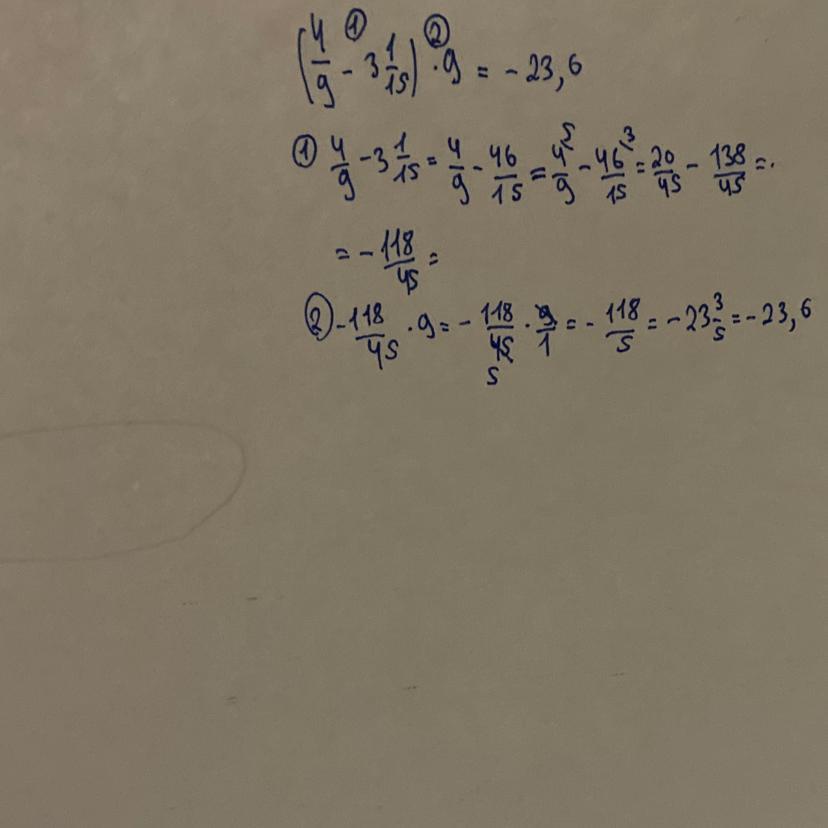 (4/9 - 3 1/15) · 9 = - 23,6
① ②
① 4/9 - 3 1/15 = 4/9 - 46/15 = 4/9 ⁵ - 46/15 ³ = 20/45 - 138/45 =
= - 118/45 =
② - 118/45 · 9 = - 118/45 · 9/1 = - 118/5 = - 23 3/5 = - 23,6
5